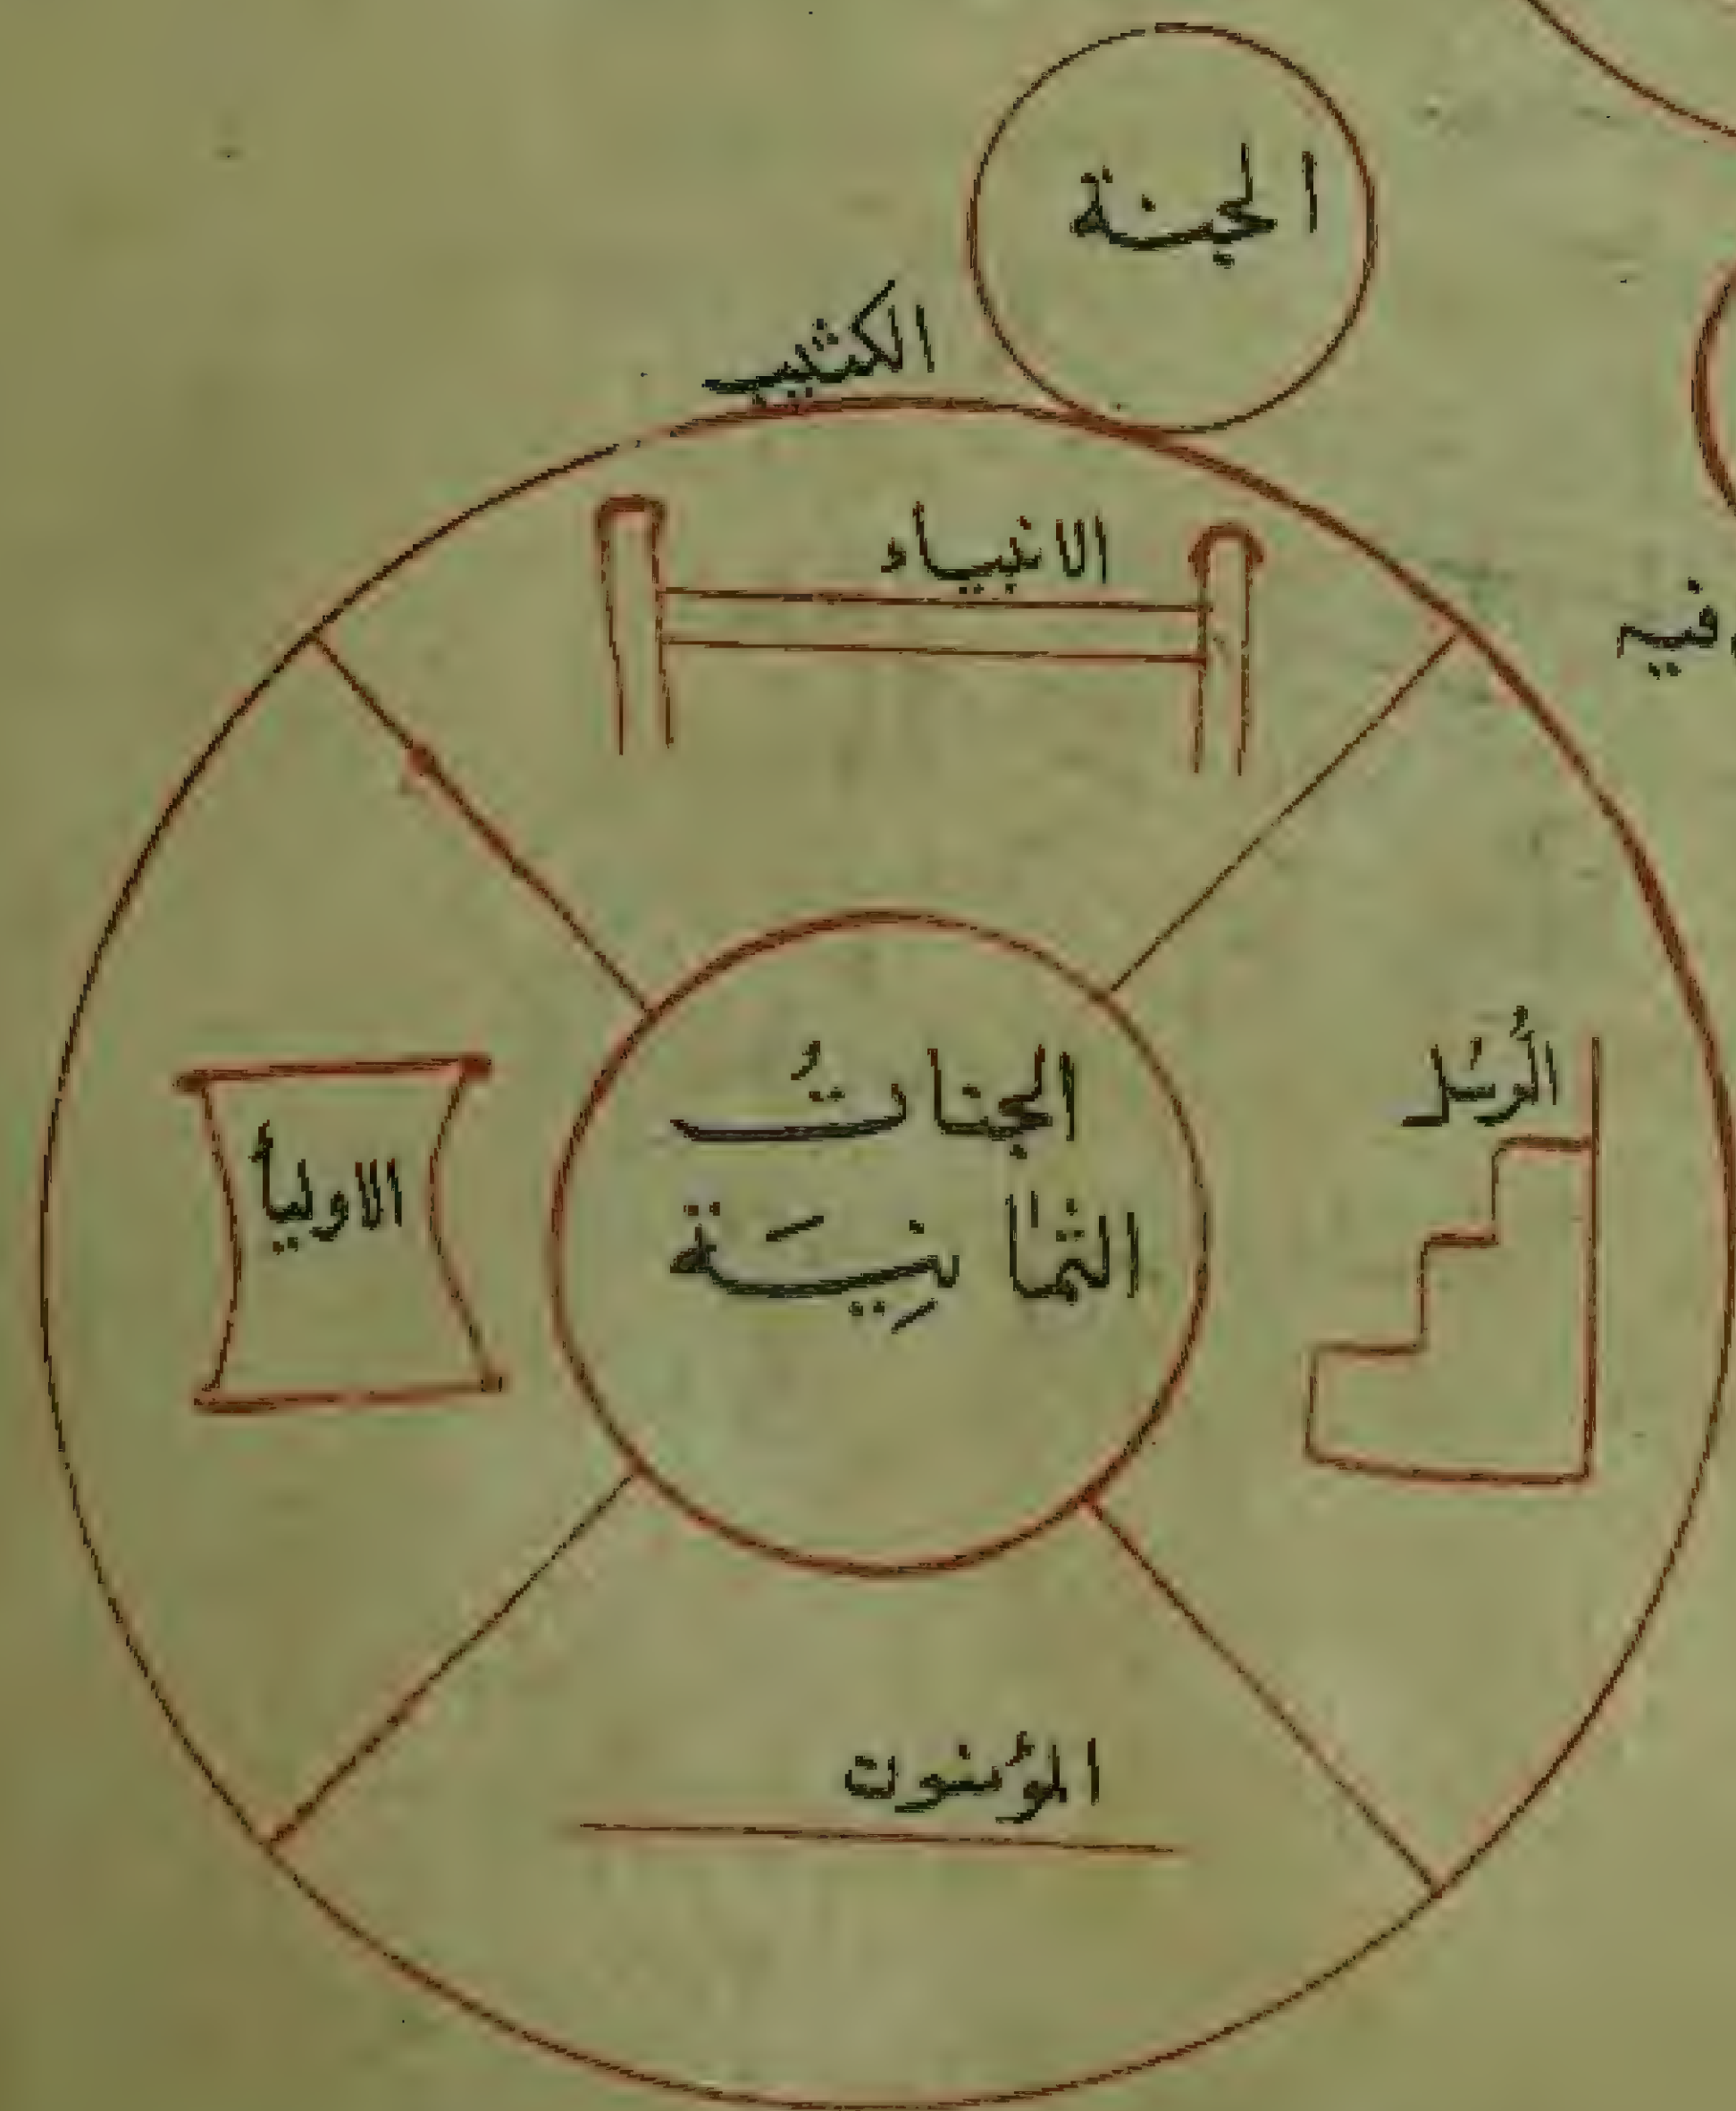 الجنة
الكثيب
الانبياء
فيه
الرُسَل
الجناتُ
الثمانِيَة
الاوليأ
المؤمنون